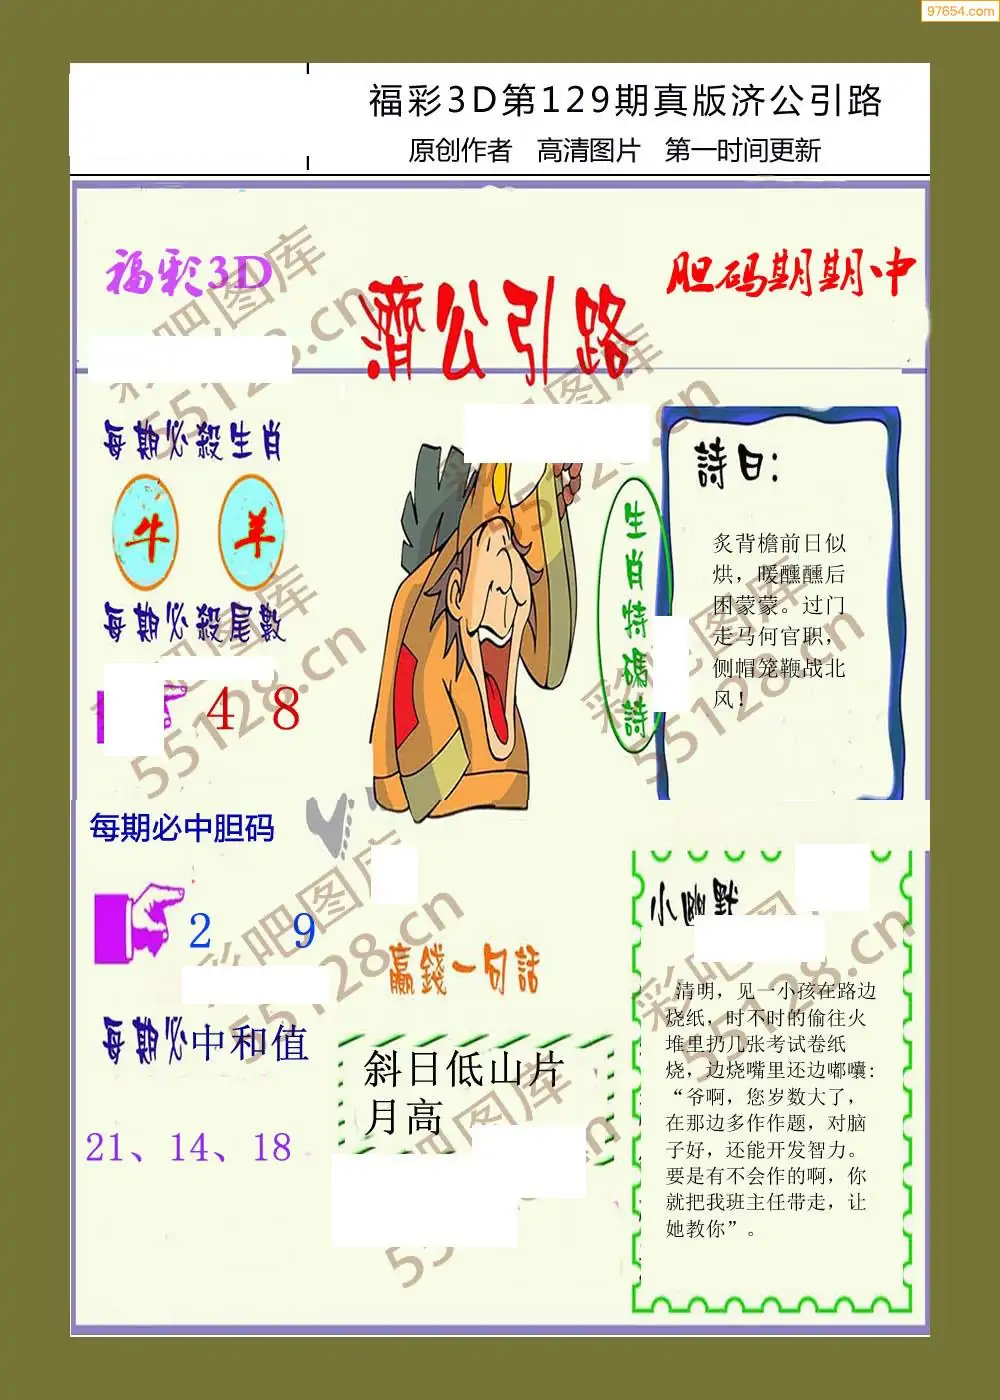 97654.com
福彩3D第129期真版济公引路
原创作者 高清图片 第一时间更新
福彩3D
濟公引路
胆码期期中
每期必殺生肖
牛 羊
每期必殺尾數
4 8
每期必中胆码
2 9
每期必中和值
21、14、18
生肖特碼詩
詩曰:
炙背檐前日似
烘，暖醺醺后
困蒙蒙。过门
走马何官职，
侧帽笼鞭战北
风！
赢錢一句話
斜日低山片
月高
小幽默
清明，见一小孩在路边
烧纸，时不时的偷往火
堆里扔几张考试卷纸
烧，边烧嘴里还边嘟囔:
“爷啊，您岁数大了，
在那边多作作题，对脑
子好，还能开发智力。
要是有不会作的啊，你
就把我班主任带走，让
她教你”。
彩吧图库
55128.cn
彩吧图库
55128.cn
彩吧图库
55128.cn
彩吧图库
55128.cn
彩吧图库
55128.cn
彩吧图库
55128.cn
彩吧图库
55128.cn